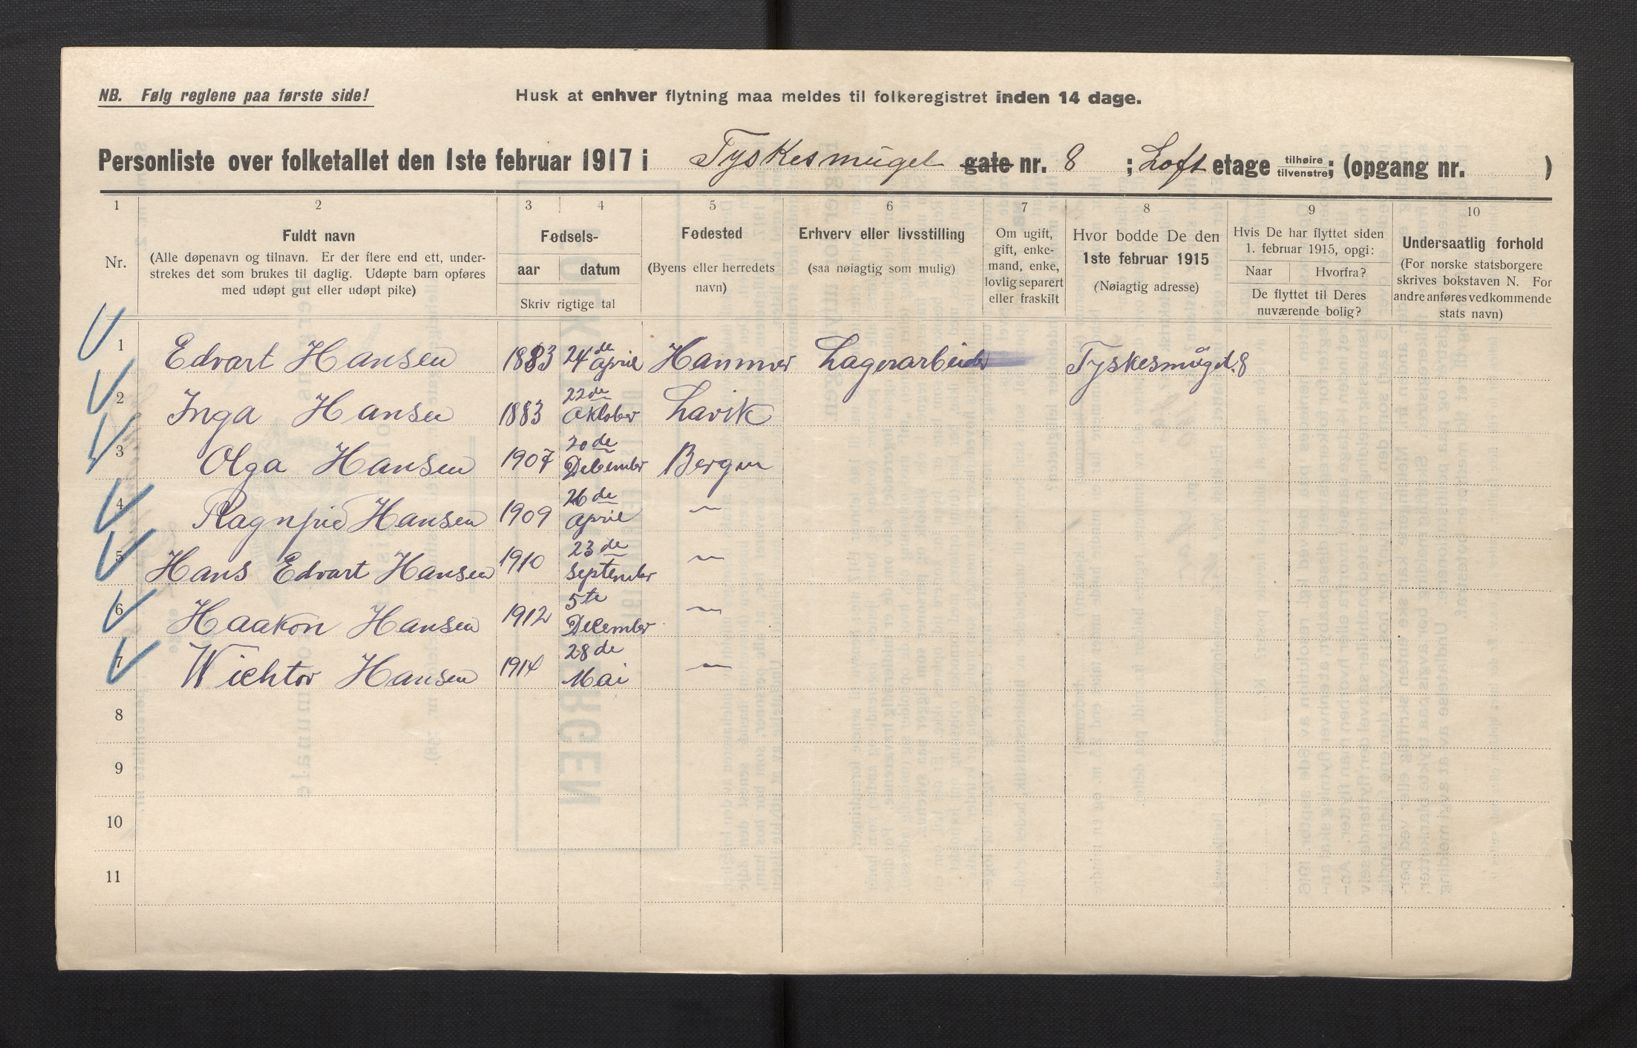 NB. Følg reglene paa første side!
Husk at enhver flytning maa meldes til folkeregistret inden 14 dage.
Personliste over folketallet den 1ste februar 1917 i Tyskesmuget gate nr. 8 ; Loft etage tilhøire tilvenstre; (opgang nr. )
1 2 3 4 5 6 7 8 9 10
Nr.
Fuldt navn
(Alle døpenavn og tilnavn. Er der flere end ett, under-
strekes det som brukes til daglig. Udøpte barn opføres
med udøpt gut eller udøpt pike)
Fødsels-
aar datum
Skriv rigtige tal
Fødested
(Byens eller herredets
navn)
Erhverv eller livsstilling
(saa nøiagtig som mulig)
Om ugift,
gift, enke-
mand, enke,
lovlig separert
eller fraskilt
Hvor bodde De den
1ste februar 1915
(Nøiagtig adresse)
Hvis De har flyttet siden
1. februar 1915, opgi:
Naar Hvorfra?
De flyttet til Deres
nuværende bolig?
Undersaatlig forhold
(For norske statsborgere
skrives bokstaven N. For
andre anføres vedkommende
stats navn)
1 Edvart Hansen 1883 24de april Hammer Lagerarbeider Tyskesmuget. 8
2 Inga Hansen 1883 22de Oktober Lavik
3 Olga Hansen 1907 20de December Bergen
4 Ragnfrid Hansen 1909 26de april —
5 Hans Edvart Hansen 1910 23de september —
6 Haakon Hansen 1912 5te December —
7 Wichtor Hansen 1914 28de Mai —
8
9
10
11